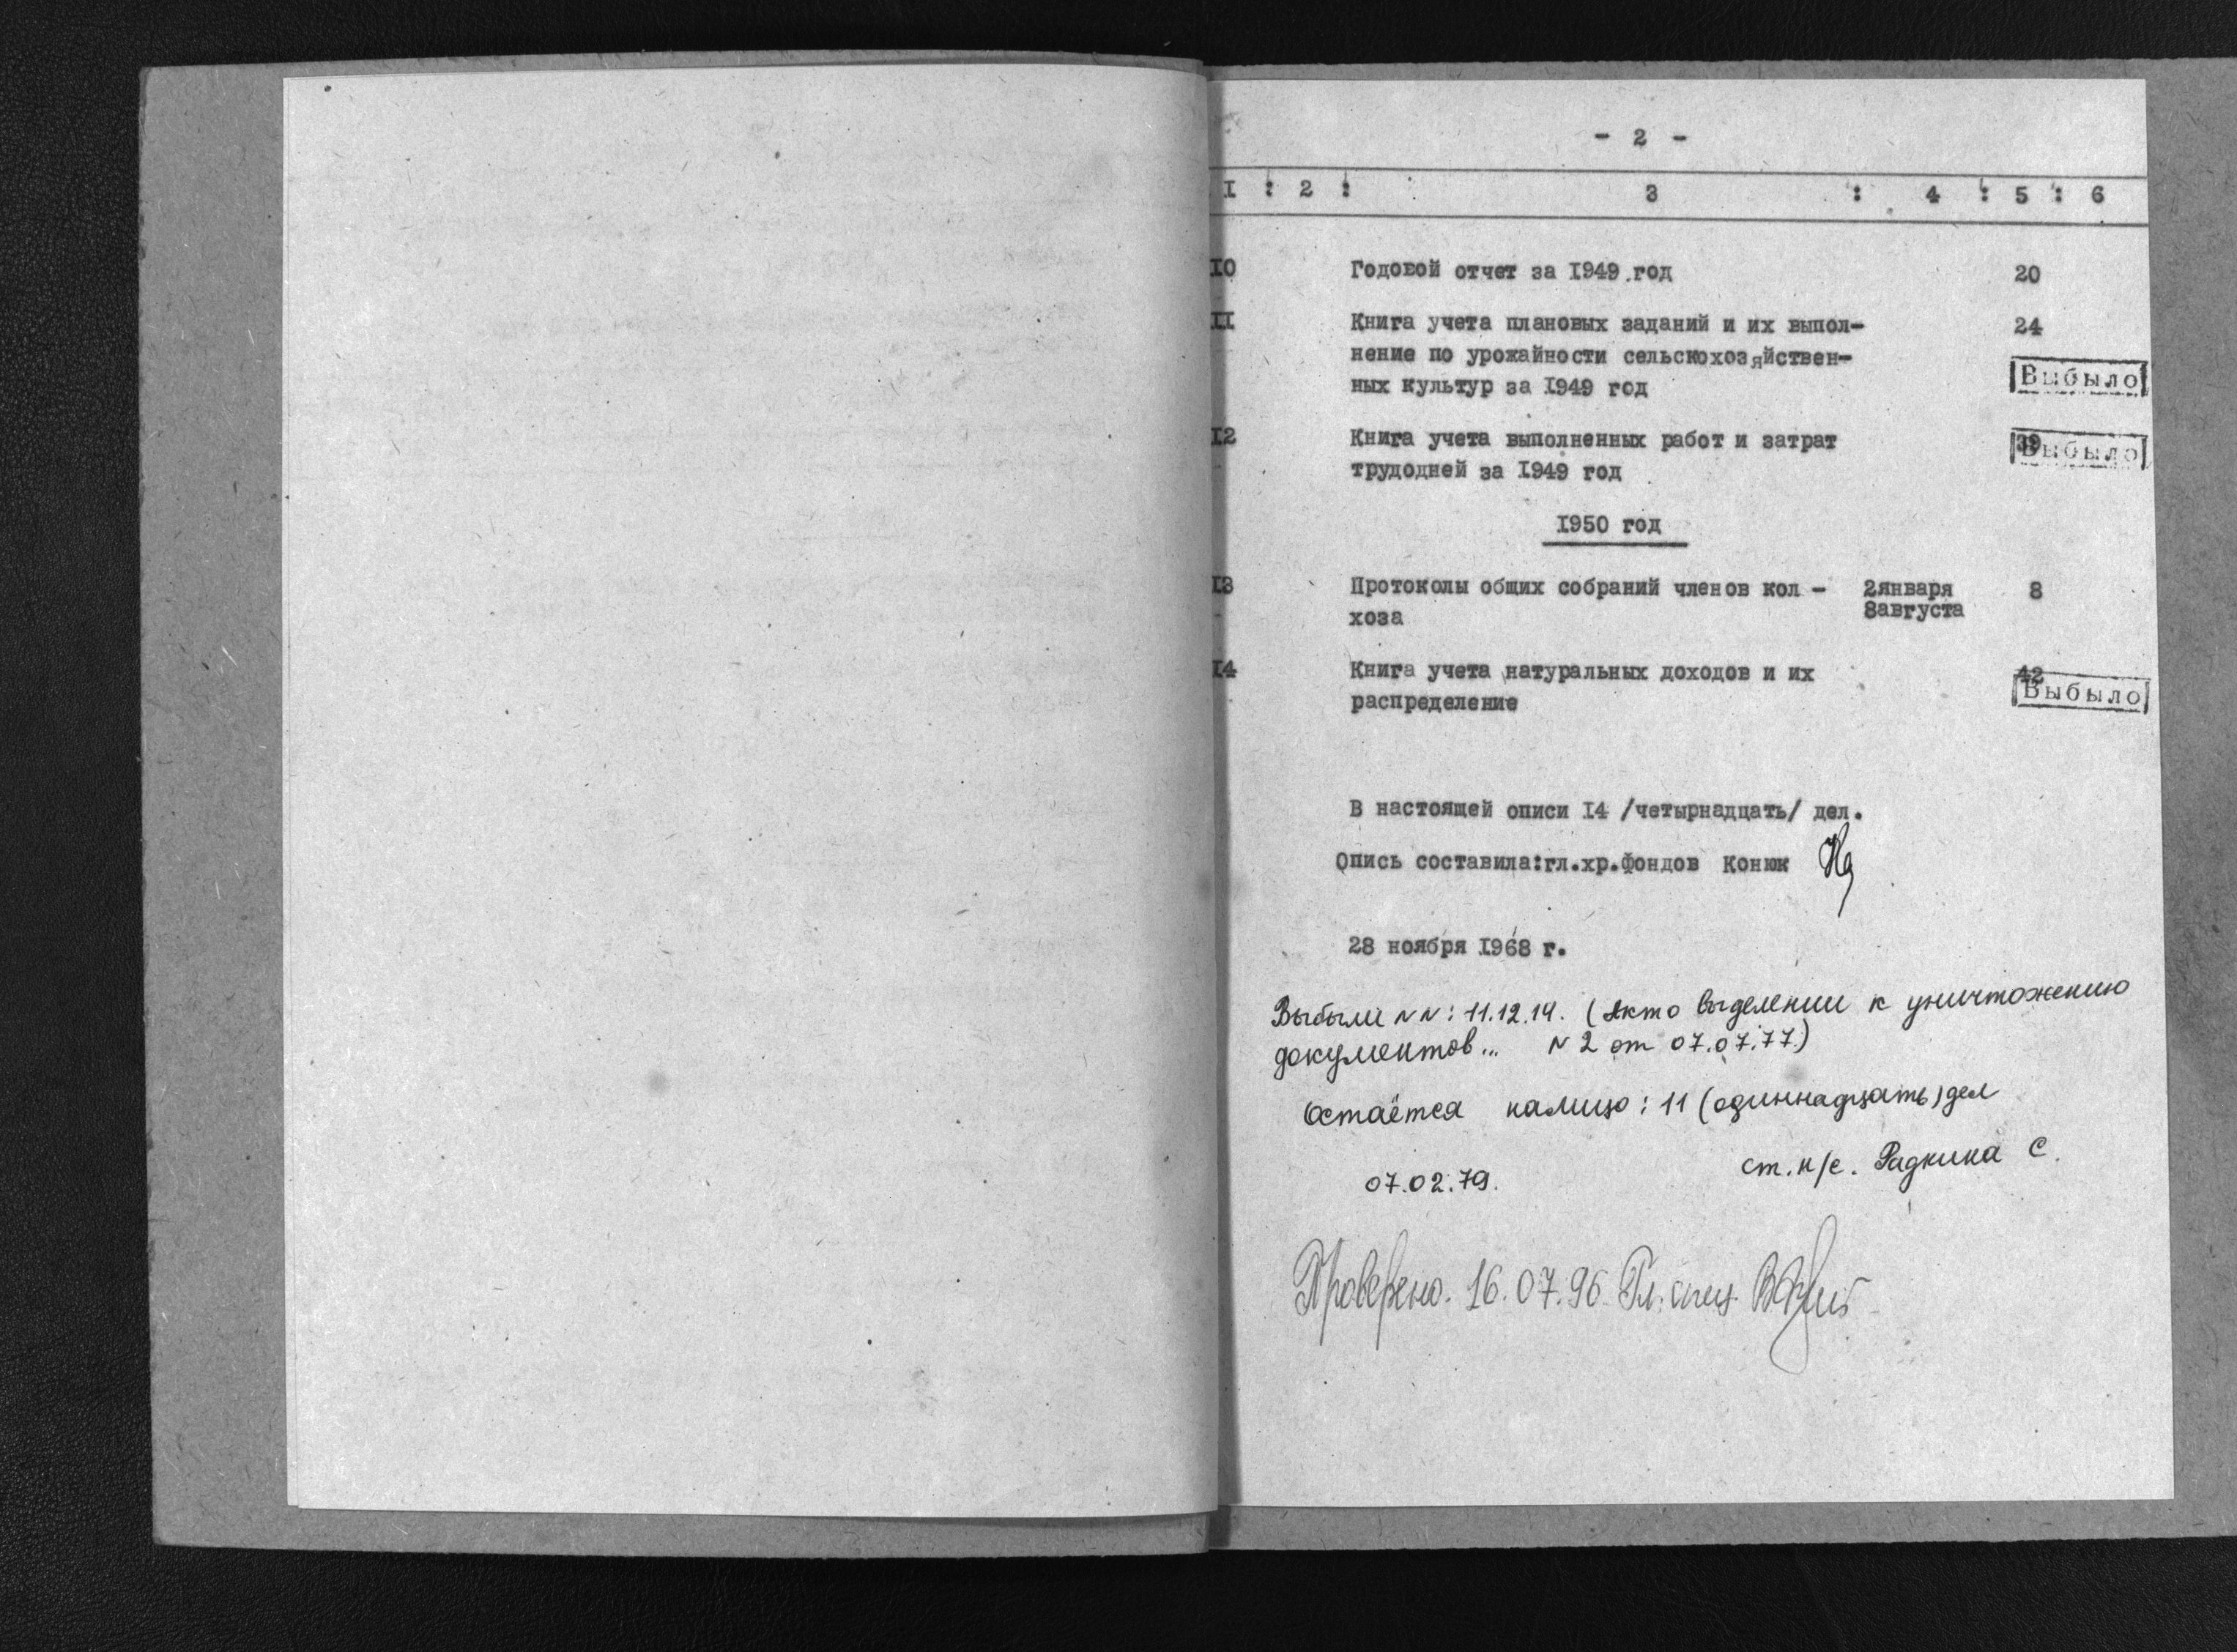 - 2 -
I : 2 : 3 : 4 : 5 : 6
10 Годовой отчет за 1949 год 20
II Книга учета плановых заданий и их выпол- 24
нение по урожайности сельскохозяйствен-
Выбыло
ных культур за 1949 год
12 Книга учета выполненных работ и затрат 39
Выбыло
трудодней за 1949 год
1950 год
13 Протоколы общих собраний членов кол - 2января 8
хоза 8августа
14 Книга учета натуральных доходов и их 42
Выбыло
распределение
В настоящей описи 14 /четырнадцать/ дел.
Опись составила:гл.хр.фондов Конюк
28 ноября 1968 г.
Выбыли NN: 11.12.14. (Акт о выделении к уничтожению
документов... N 2 от 07.07.77.)
Остаётся налицо: 11 (одиннадцать) дел
ст.н/с. Радкина С.
07.02.79.
Проверено. 16.07.96. Гл. спец.